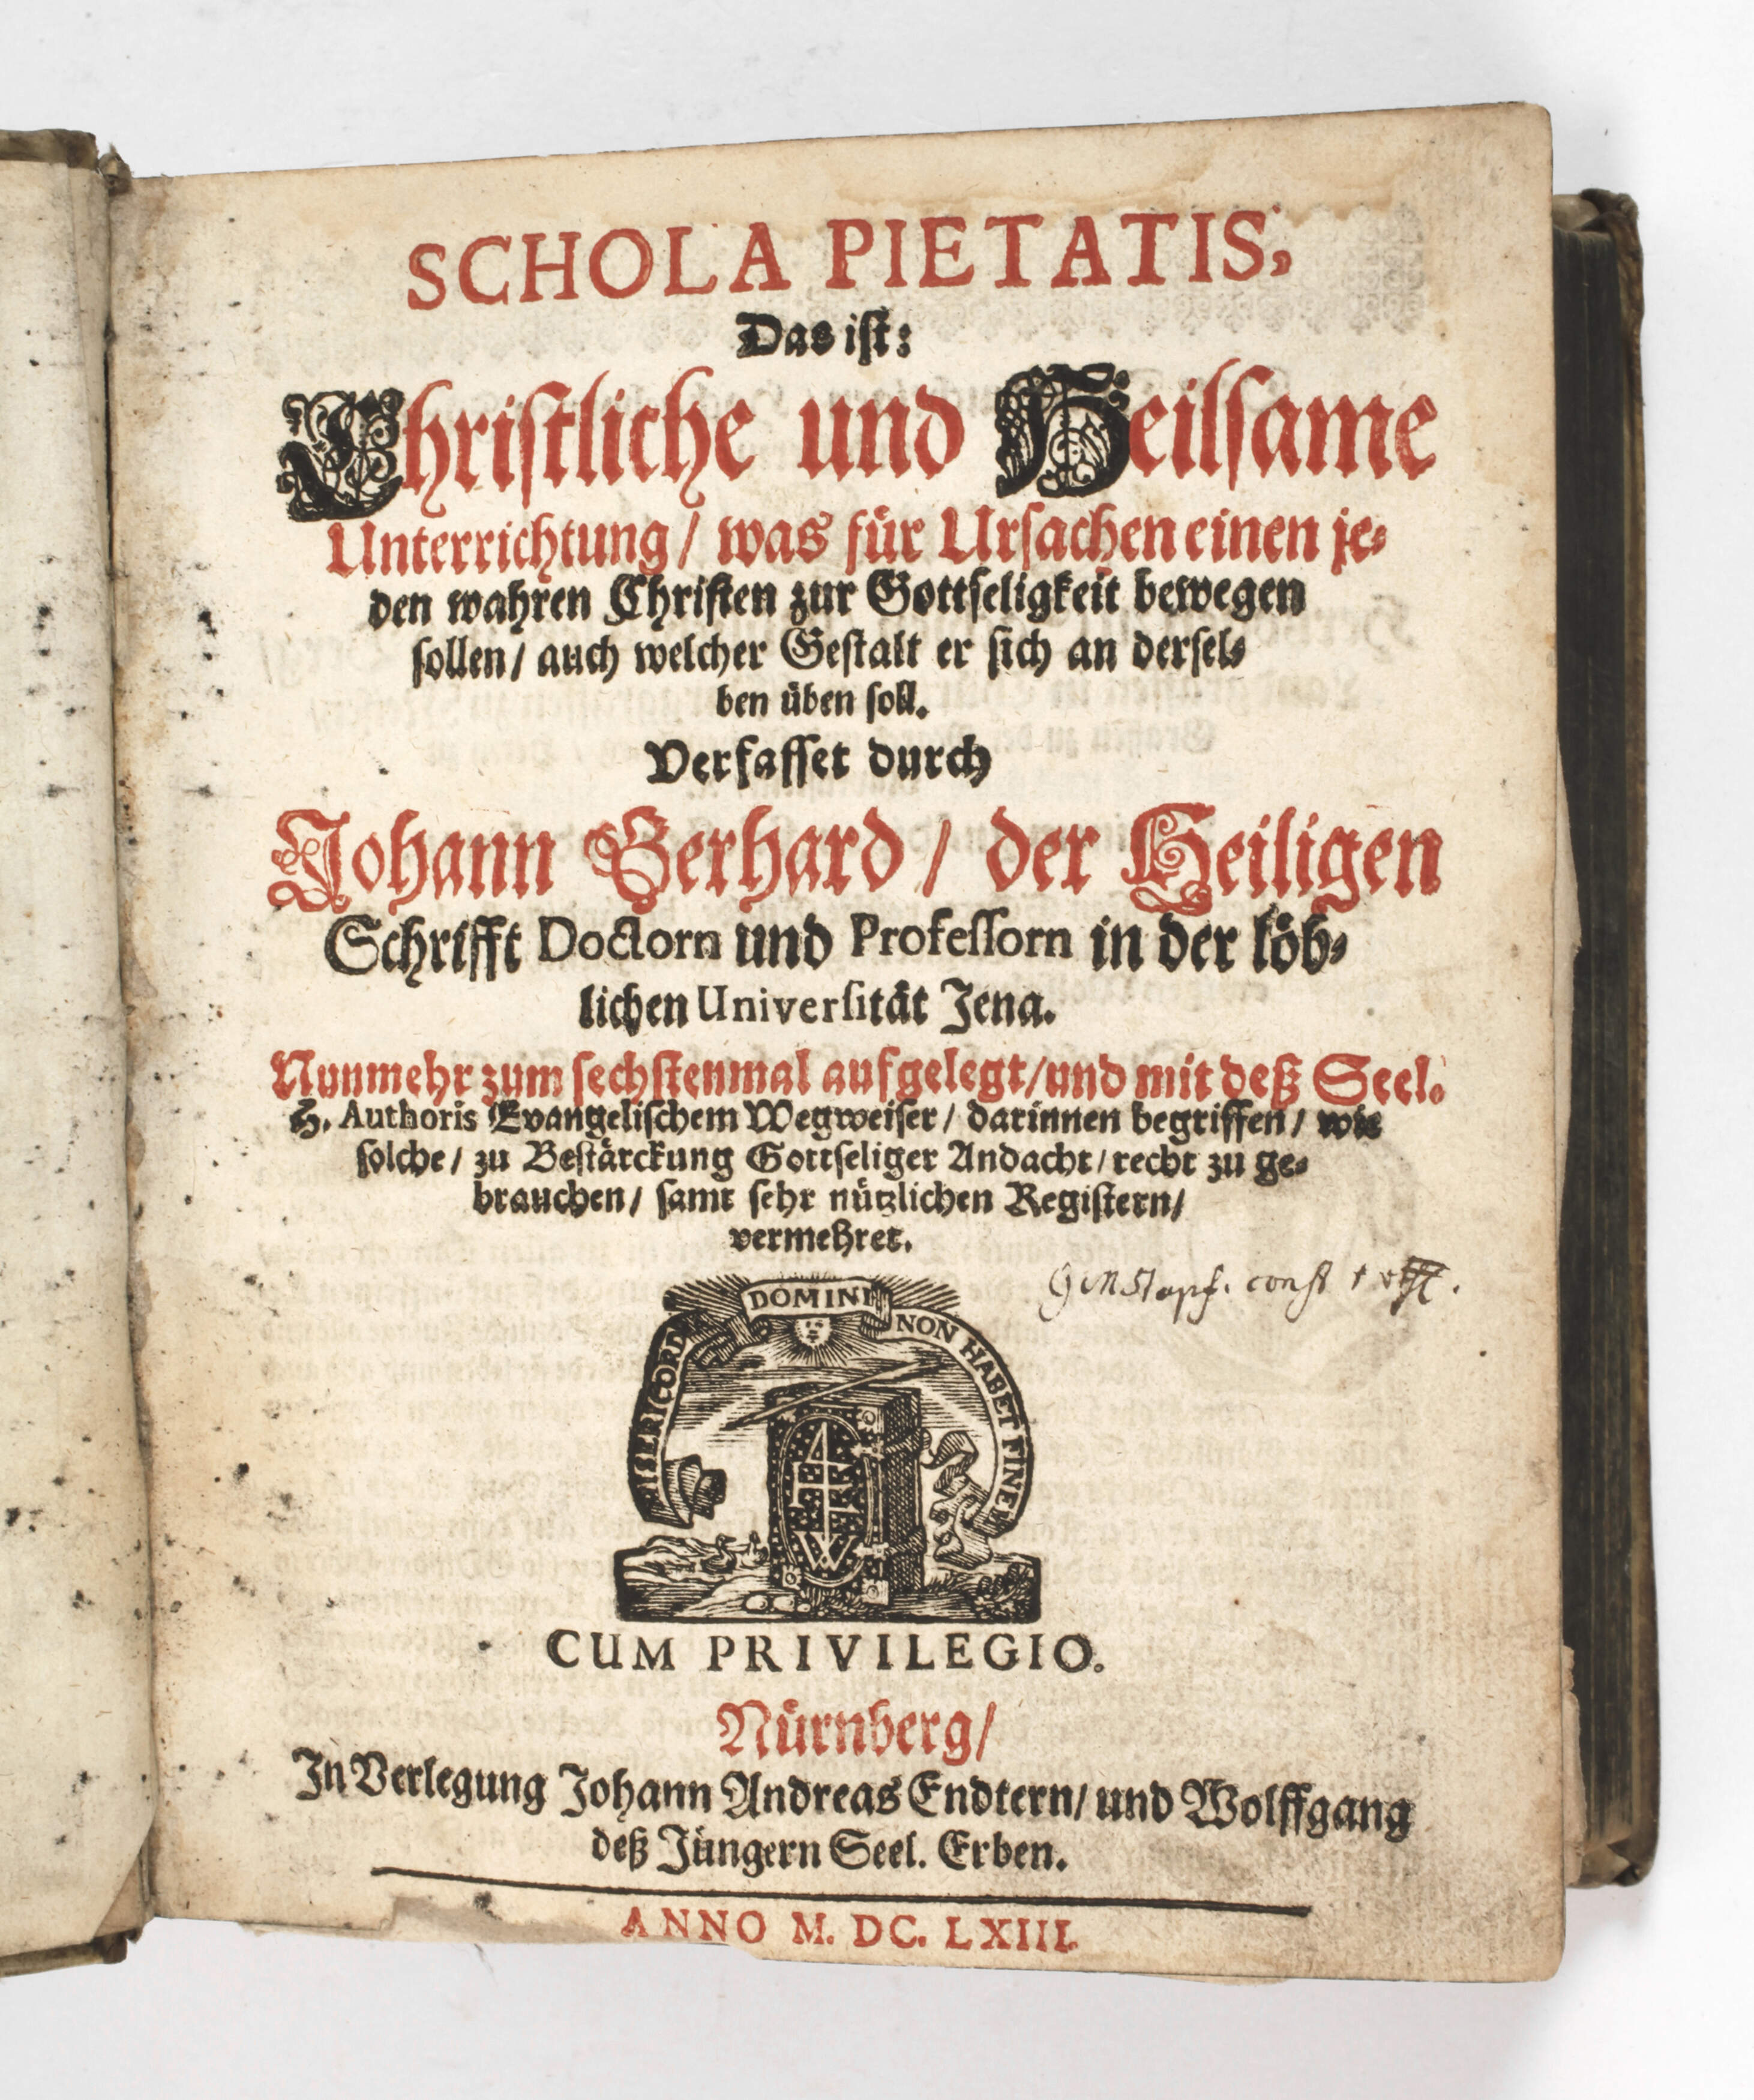 SCHOLA PIETATIS,
Das ist:
Christliche und Heilsame
Unterrichtung / was für Ursachen einen je-
den wahren Christen zur Gottseligkeit bewegen
sollen / auch welcher Gestalt er sich an dersel-
ben üben soll.
Verfasset durch
Johann Gerhard / der Heiligen
Schrifft Doctorn und Professorn in der löb-
lichen Universität Jena.
Nunmehr zum sechstenmal aufgelegt / und mit deß Seel.
H. Authoris Evangelischem Wegweiser / darinnen begriffen / wie
solche / zu Bestärckung Gottseliger Andacht / recht zu ge-
brauchen / samt sehr nützlichen Registern /
vermehret.
const
MISERICORDIA DOMINI NON HABET FINEM
CUM PRIVILEGIO.
Nürnberg /
In Verlegung Johann Andreas Endtern / und Wolffgang
deß Jüngern Seel. Erben.
ANNO M. DC. LXIII.